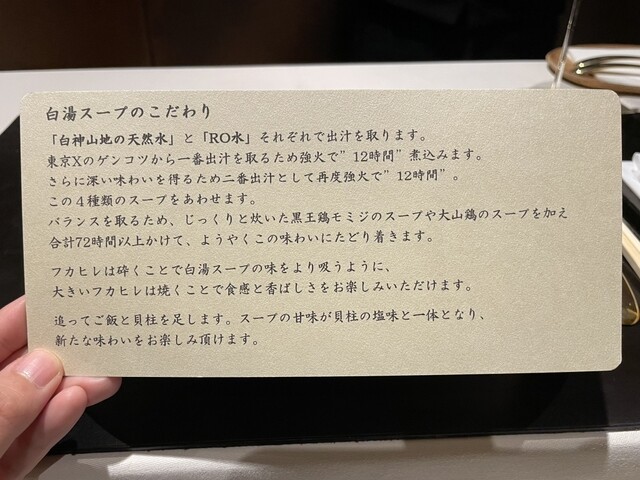 白湯スープのこだわり
「白神山地の天然水」と「RO水」それぞれで出汁を取ります。
東京Xのゲンコツから一番出汁を取るため強火で”12時間”煮込みます。
さらに深い味わいを得るため二番出汁として再度強火で”12時間”。
この４種類のスープをあわせます。
バランスを取るため、じっくりと炊いた黒王鶏モミジのスープや大山鶏のスープを加え
合計72時間以上かけて、ようやくこの味わいにたどり着きます。
フカヒレは砕くことで白湯スープの味をより吸うように、
大きいフカヒレは焼くことで食感と香ばしさをお楽しみいただけます。
追ってご飯と貝柱を足します。スープの甘味が貝柱の塩味と一体となり、
新たな味わいをお楽しみ頂けます。